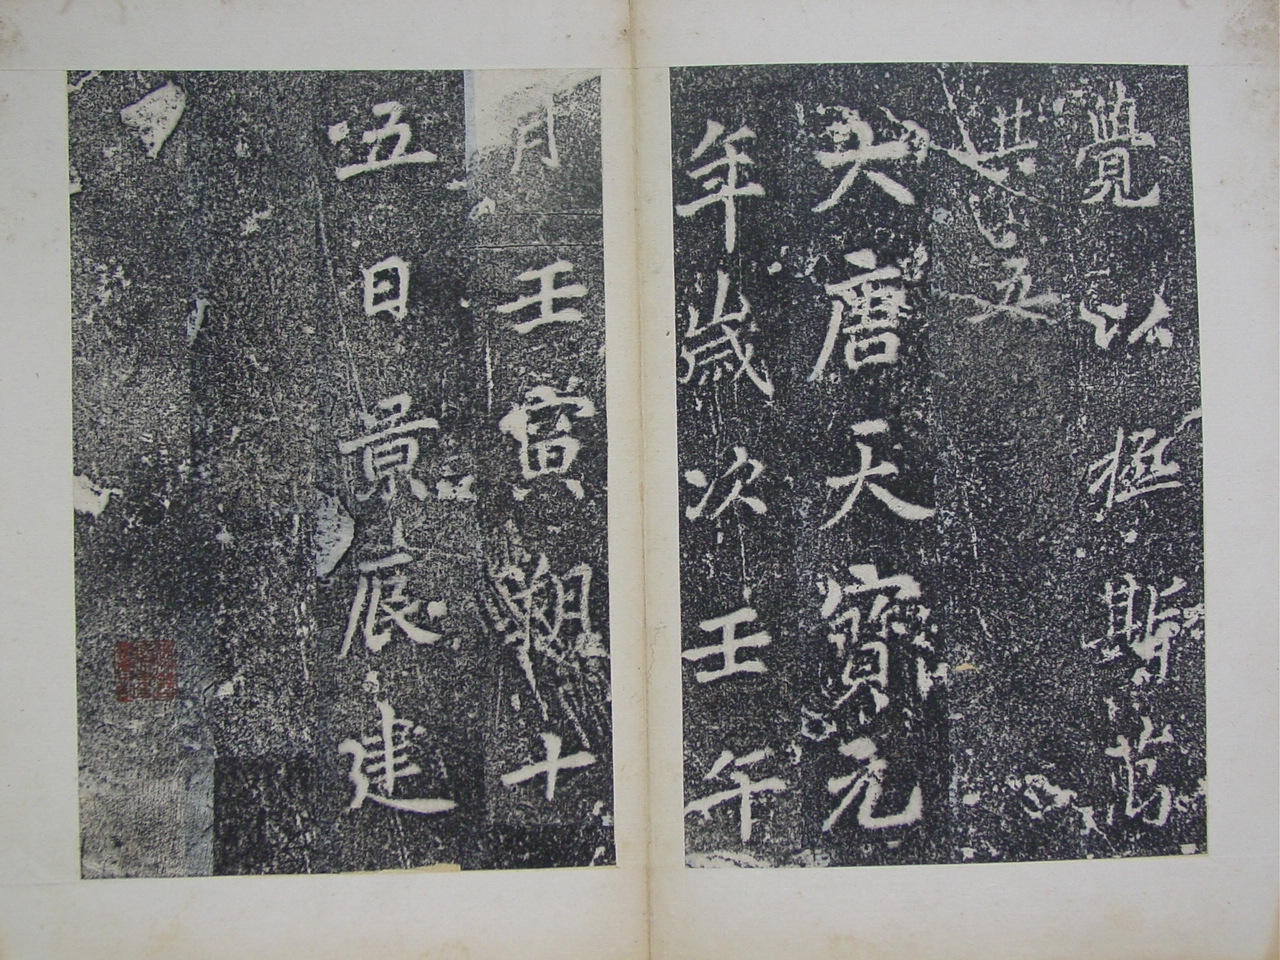 覺以拯斯
其五
大唐天寶元
年歲次壬午
月壬寅朔十
五日景辰建